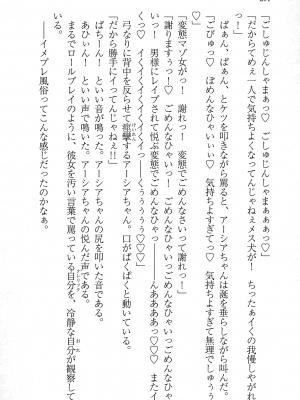 「ごしゅじんしゃまぁ♡　ごしゅじんしゃまぁぁぁっ♡」
「だからてめぇ一人で気持ちよくなってんじゃねぇメス犬が！　ちったぁイくの我慢しやがれ！」
「ごびゅっ♡　ごめんなひゃいぃ♡　気持ちよすぎてっ♡♡　気持ちよすぎて無理でしゅぅぅ♡」
ぱぁん、ぱぁん、とケツを叩きながら罵ると、アーシアちゃんは涎を垂らしながら叫んだ。
「変態マゾ女が！　謝れっ！　変態でごめんなさいって謝れ！」
「謝りますぅっ♡　ごめんなひゃいっ！　変態でごめんなひゃいっごめんなひゃいっごめんなひゃいっ♡　男様にレイプされて悦ぶ変態でごめんなひゃいっ♡♡　んあああぁっ♡　またイくっ！　イくイくイくイくイくイくイくイくぅぅぅぅっ♡♡♡」
弓なりに背中を反らせて痙攣するアーシアちゃん。口がぱくぱくと動いている。
「だから勝手にイってんじゃねぇ!!」
ばちーん！　という音が鳴った。アーシアちゃんの尻を叩いた音である。
あひぃん！　という声で鳴った。アーシアちゃんの悦んだ声である。
まるでロールプレイのように、彼女を汚い言葉で罵っている自分を、冷静な自分が観察している。
――イメプレ風俗ってこんな感じだったのかなぁ。